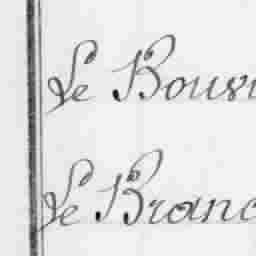 Le Bouvi
Le Branc